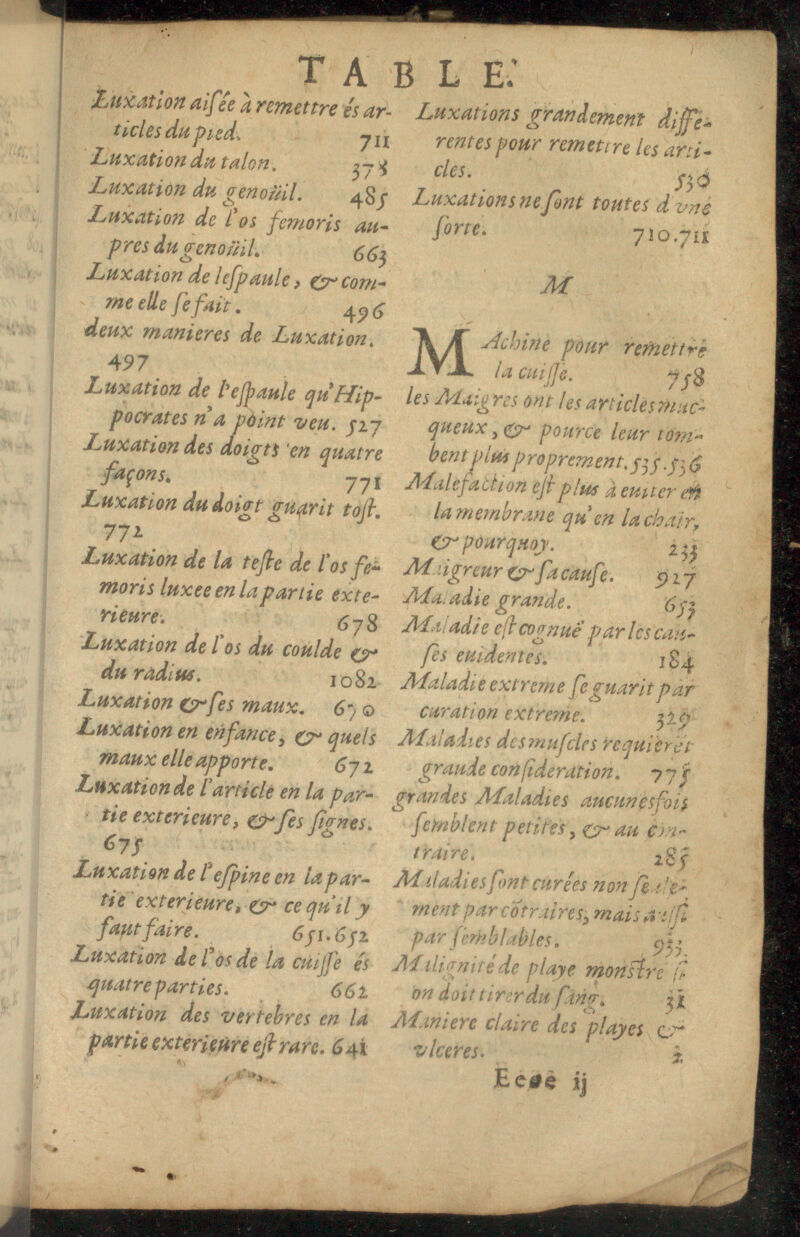 TABLE.
Luxation aisée à remettre és ar-
ticles du pied. 711
Luxation du talon. 378
Luxation du genoüil. 485
Luxation de l'os femoris au-
pres du genoüil. 663
Luxation de lespaule, & com-
me elle se fait. 496
deux manieres de Luxation.
497
Luxation de l'espaule qu'Hip-
pocrates n'a point veu. 527
Luxation des doigts en quatre
façons. 771
Luxation du doigt guarit tost.
772
Luxation de la teste de l'os fe-
moris luxee en la partie exte-
rieure. 678
Luxation de l'os du coulde &
du radius. 1082
Luxation & ses maux. 670
Luxation en enfance, & quels
maux elle apporte. 672
Luxation de l'article en la par-
tie exterieure, & ses signes.
675
Luxation de l'espine en la par-
tie exterieure, & ce qu'il y
faut faire. 651.652
Luxation de l'os de la cuisse és
quatre parties. 662
Luxation des vertebres en la
partie exterieure est rare. 641
Luxations grandement diffe-
rentes pour remettre les arti-
cles. 536
Luxations ne sont toutes d'vne
sorte. 710.711
M
MAchine pour remettre
la cuisse. 758
les Maigres ont les articles muc-
queux, & pource leur tom-
bent plus proprement. 535.536
Malefaction est plus à euiter en
la membrane qu'en la chair,
& pourquoy. 233
Maigreur & sa cause. 927
Maladie grande. 653
Maladie est cognuë par les cau-
ses euidentes. 184
Maladie extreme se guarit par
curation extreme. 329
Maladies des muscles requierēt
grande consideration. 775
grandes Maladies aucunesfois
semblent petites, & au con-
traire. 285
Maladies sont curées non seule-
ment par cōtraires, mais aussi
par semblables. 933
Malignité de playe monstre si
on doit tirer du sang. 31
Maniere claire des playes &
vlceres. 2
Eeee ij